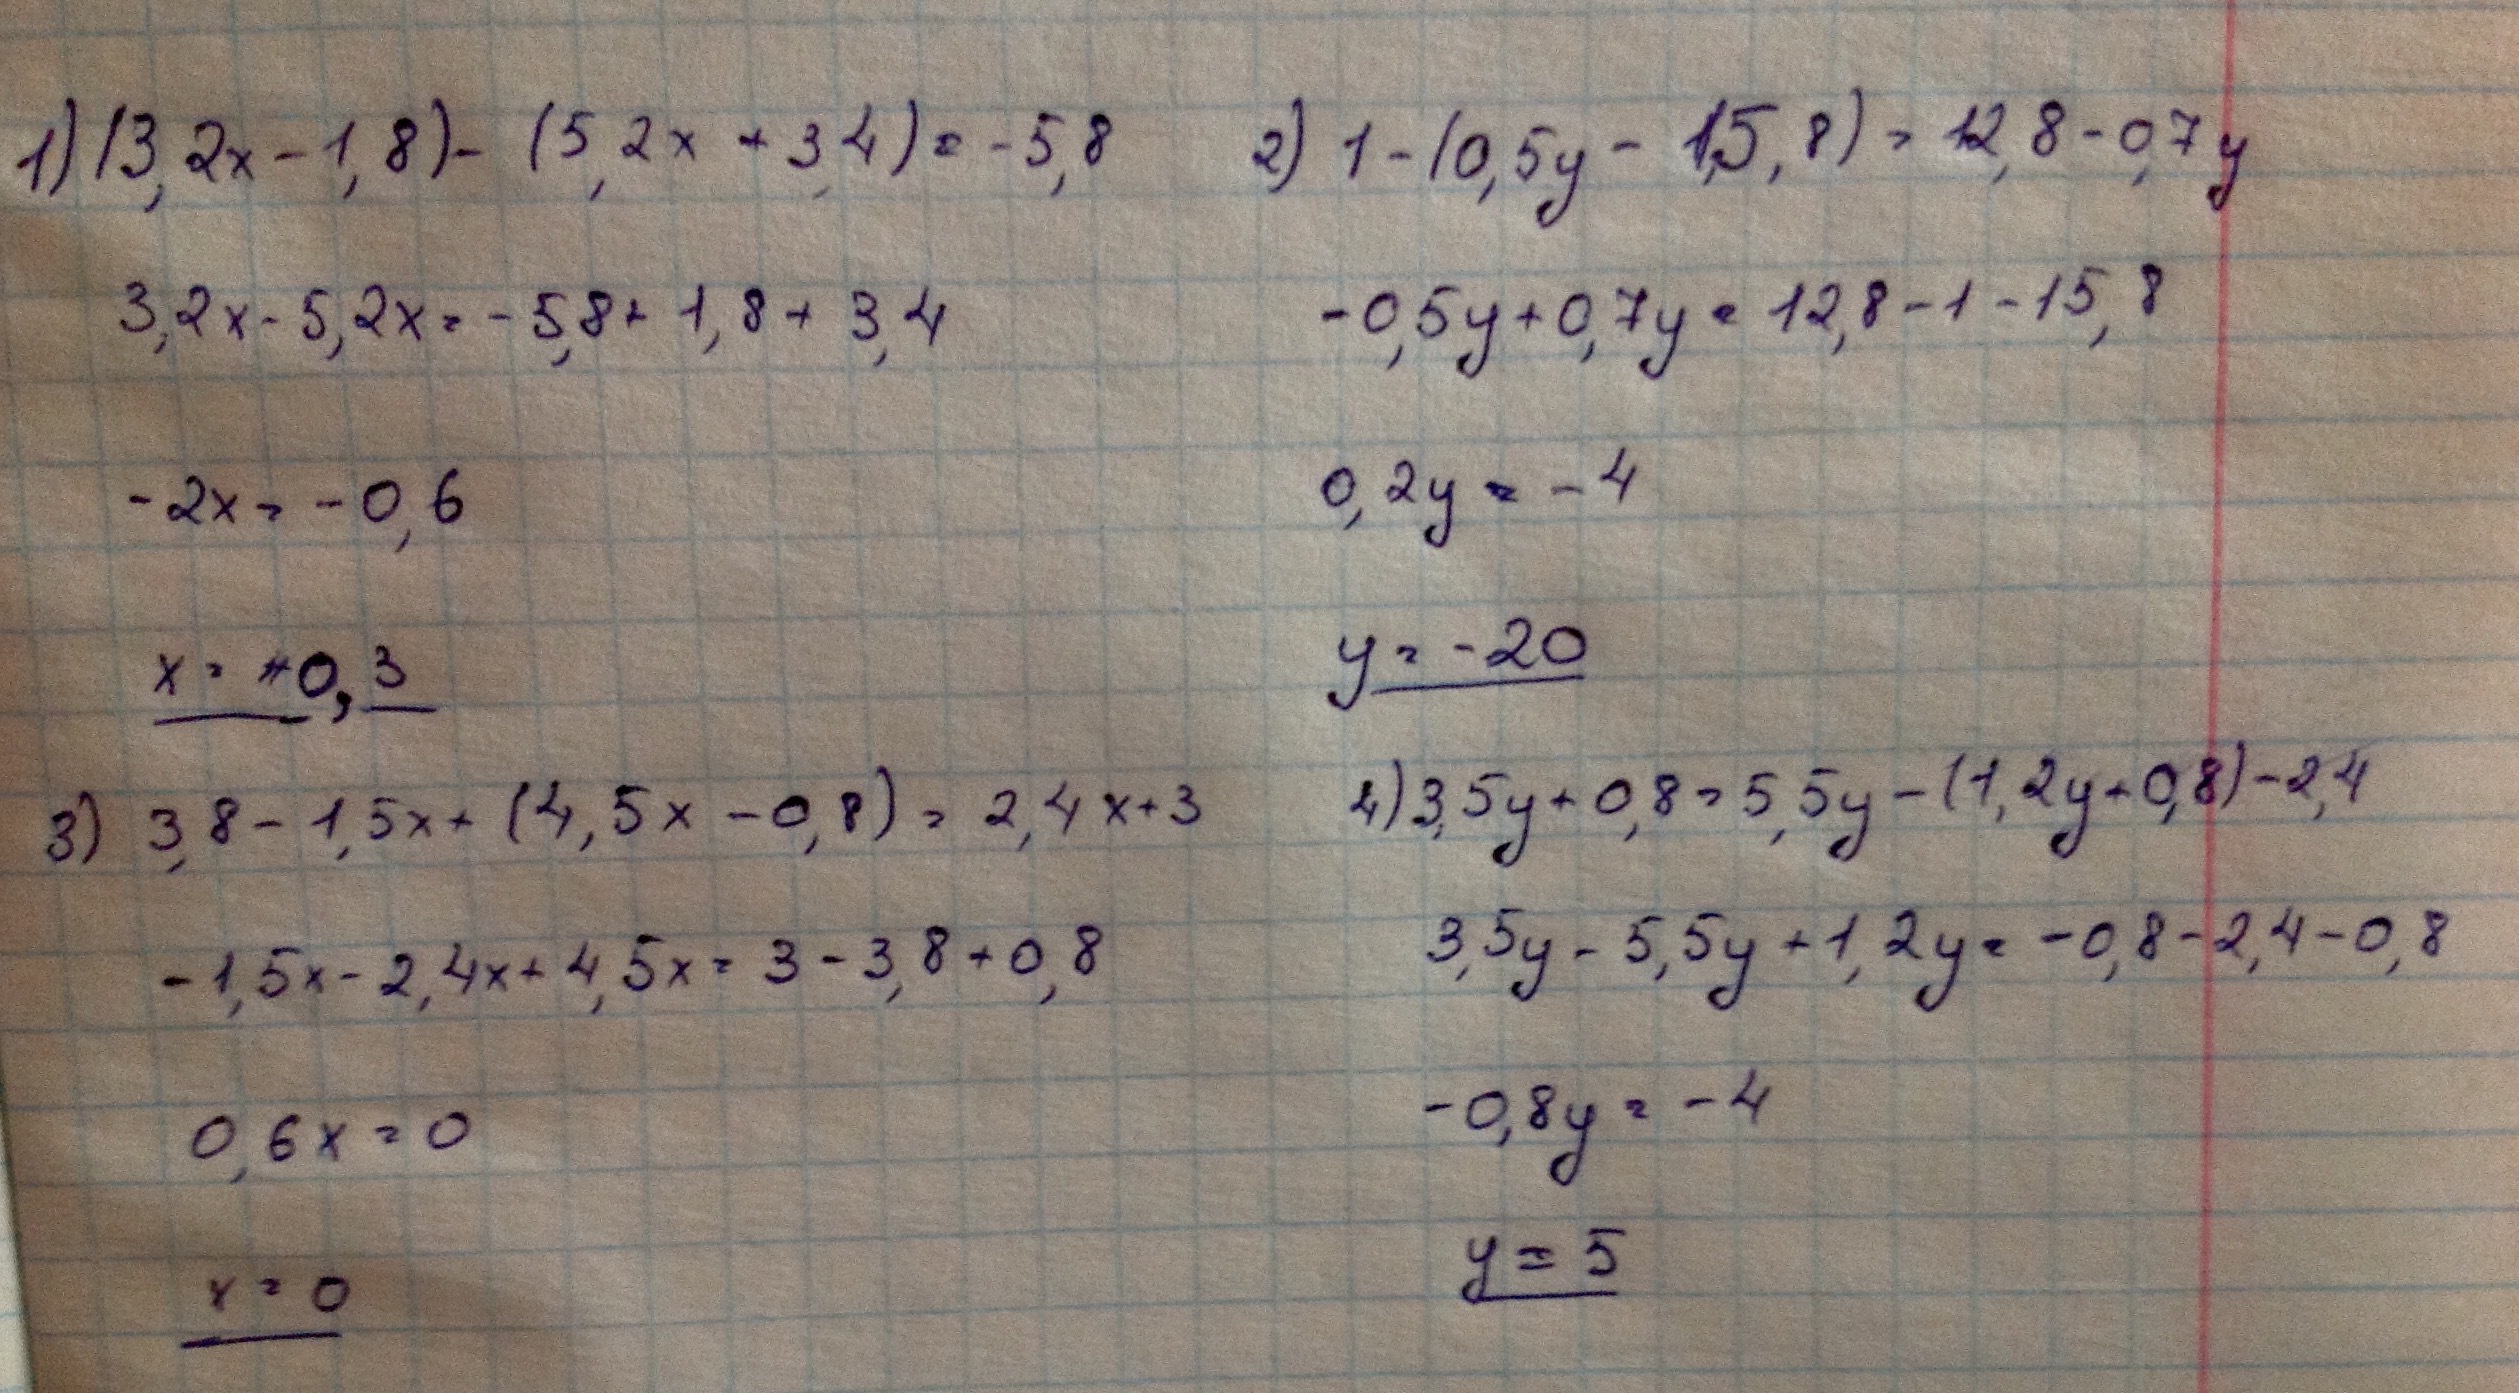 1) (3,2x - 1,8) - (5,2x + 3,4) = -5,8
3,2x - 5,2x = -5,8 + 1,8 + 3,4
-2x = -0,6
x = +0,3
2) 1 - (0,5y - 15,8) = 12,8 - 0,7y
-0,5y + 0,7y = 12,8 - 1 - 15,8
0,2y = -4
y = -20
3) 3,8 - 1,5x + (4,5x - 0,8) = 2,4x + 3
-1,5x - 2,4x + 4,5x = 3 - 3,8 + 0,8
0,6x = 0
x = 0
4) 3,5y + 0,8 = 5,5y - (1,2y + 0,8) - 2,4
3,5y - 5,5y + 1,2y = -0,8 - 2,4 - 0,8
-0,8y = -4
y = 5